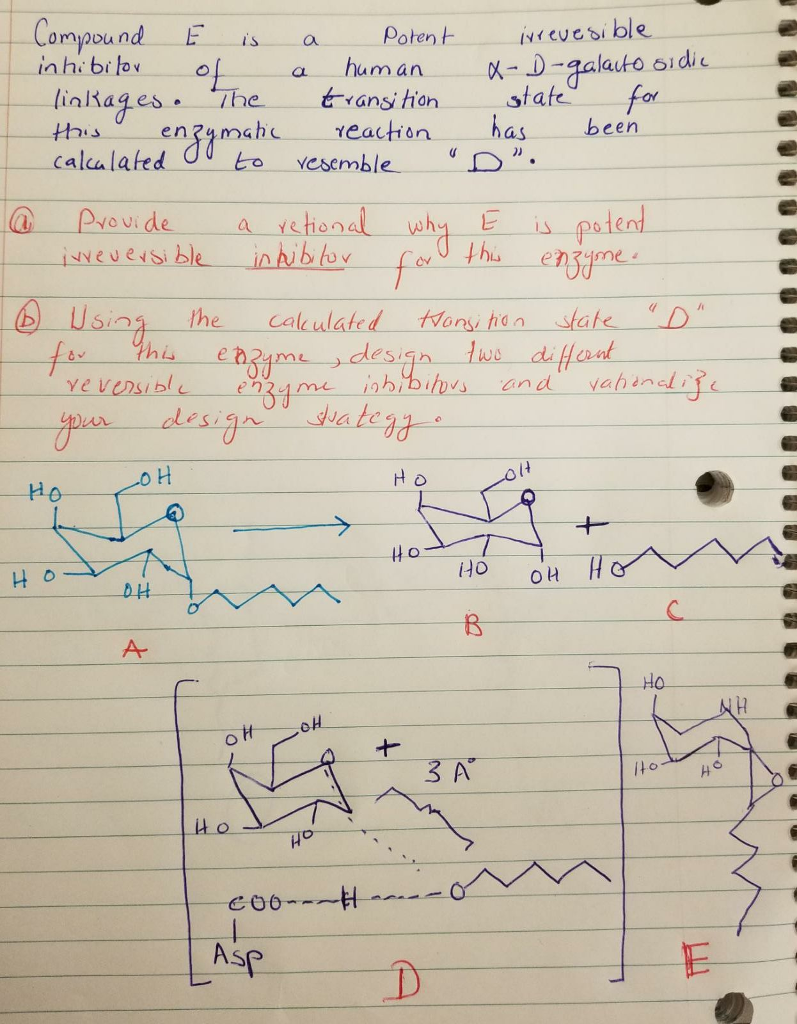 Compound E is a Potent irreversible
inhibitor of a human α-D-galactosidic
linkages. The transition state for
this enzymatic reaction has been
calculated to resemble "D".
ⓐ Provide a retional why E is potent
irreversible inhibitor for this enzyme.
ⓑ Using the calculated transition state "D"
for this enzyme, design two different
reversible enzyme inhibitors and rationalize
your design strategy.
HO OH O
HO OH
O
A
HO OH O
HO HO OH
B
+
HO
C
OH OH O +
HO HO
3 A°
COO----H----O
Asp
D
HO NH
HO HO O
E